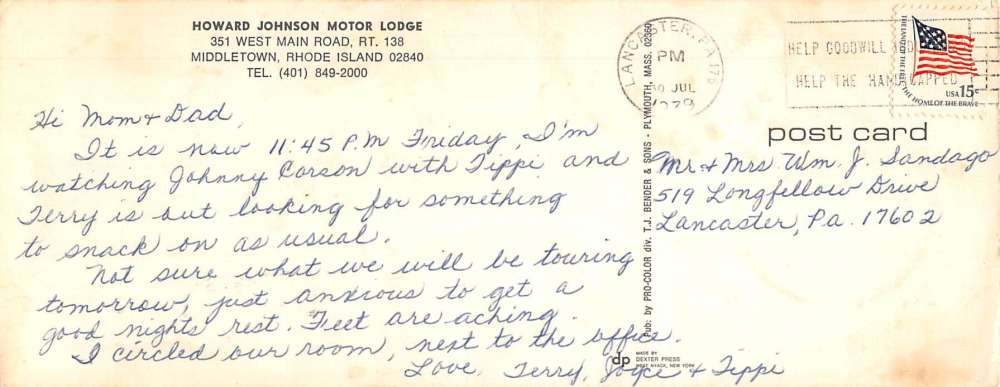 HOWARD JOHNSON MOTOR LODGE
351 WEST MAIN ROAD, RT. 138
MIDDLETOWN, RHODE ISLAND 02840
TEL. (401) 849-2000
Hi Mom & Dad,
It is now 11:45 P.M Friday, I'm
watching Johnny Carson with Tippi and
Terry is out looking for something
to snack on as usual.
Not sure what we will be touring
tomorrow, just anxious to get a
good nights rest. Feet are aching.
I circled our room, next to the office.
Love, Terry, Joyce & Tippi
Pub: by PRO-COLOR div. T.J. BENDER & SONS - PLYMOUTH, MASS. 02360
dp
MADE BY
DEXTER PRESS
WEST NYACK, NEW YORK
LANCASTER, PA 176
PM
JUL
1979
HELP GOODWILL
HELP THE HANDICAPPED
THE LAND OF THE FREE
THE HOME OF THE BRAVE
USA 15c
post card
Mr. & Mrs. Wm. J. Sandago
519 Longfellow Drive
Lancaster, Pa. 17602